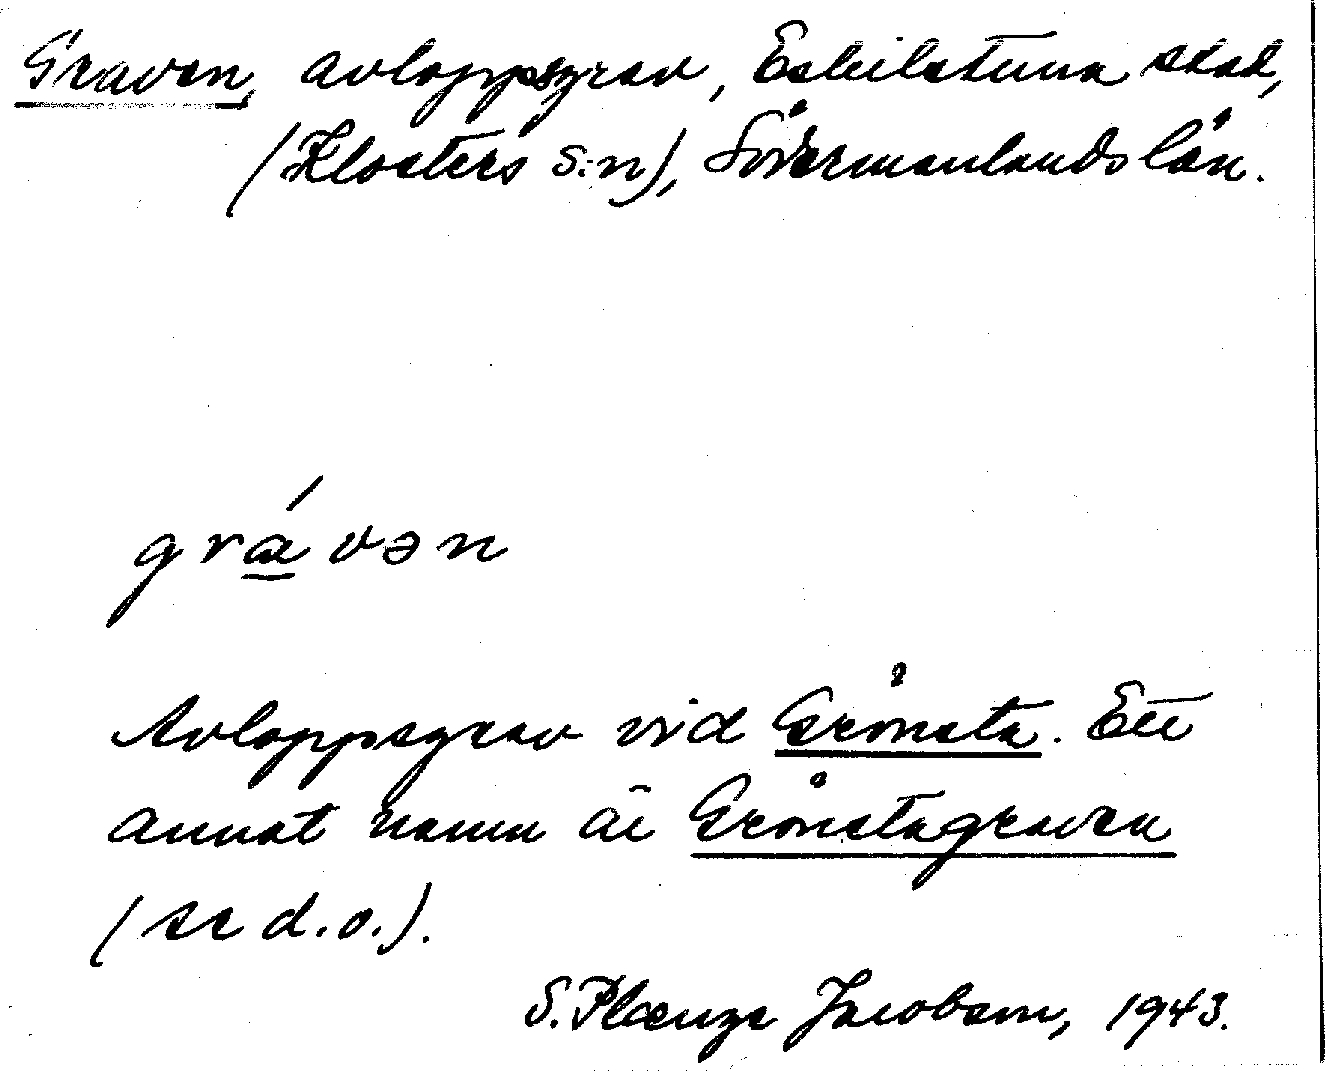 Graven, avloppsgrav, Eskilstuna stad,
(Klosters s:n), Södermanlands län.
grávən
Avloppsgrav vid Grönsta. Ett
annat namn är Grönstagraven
(se d.o.).
S. Plænge Jacobson, 1943.